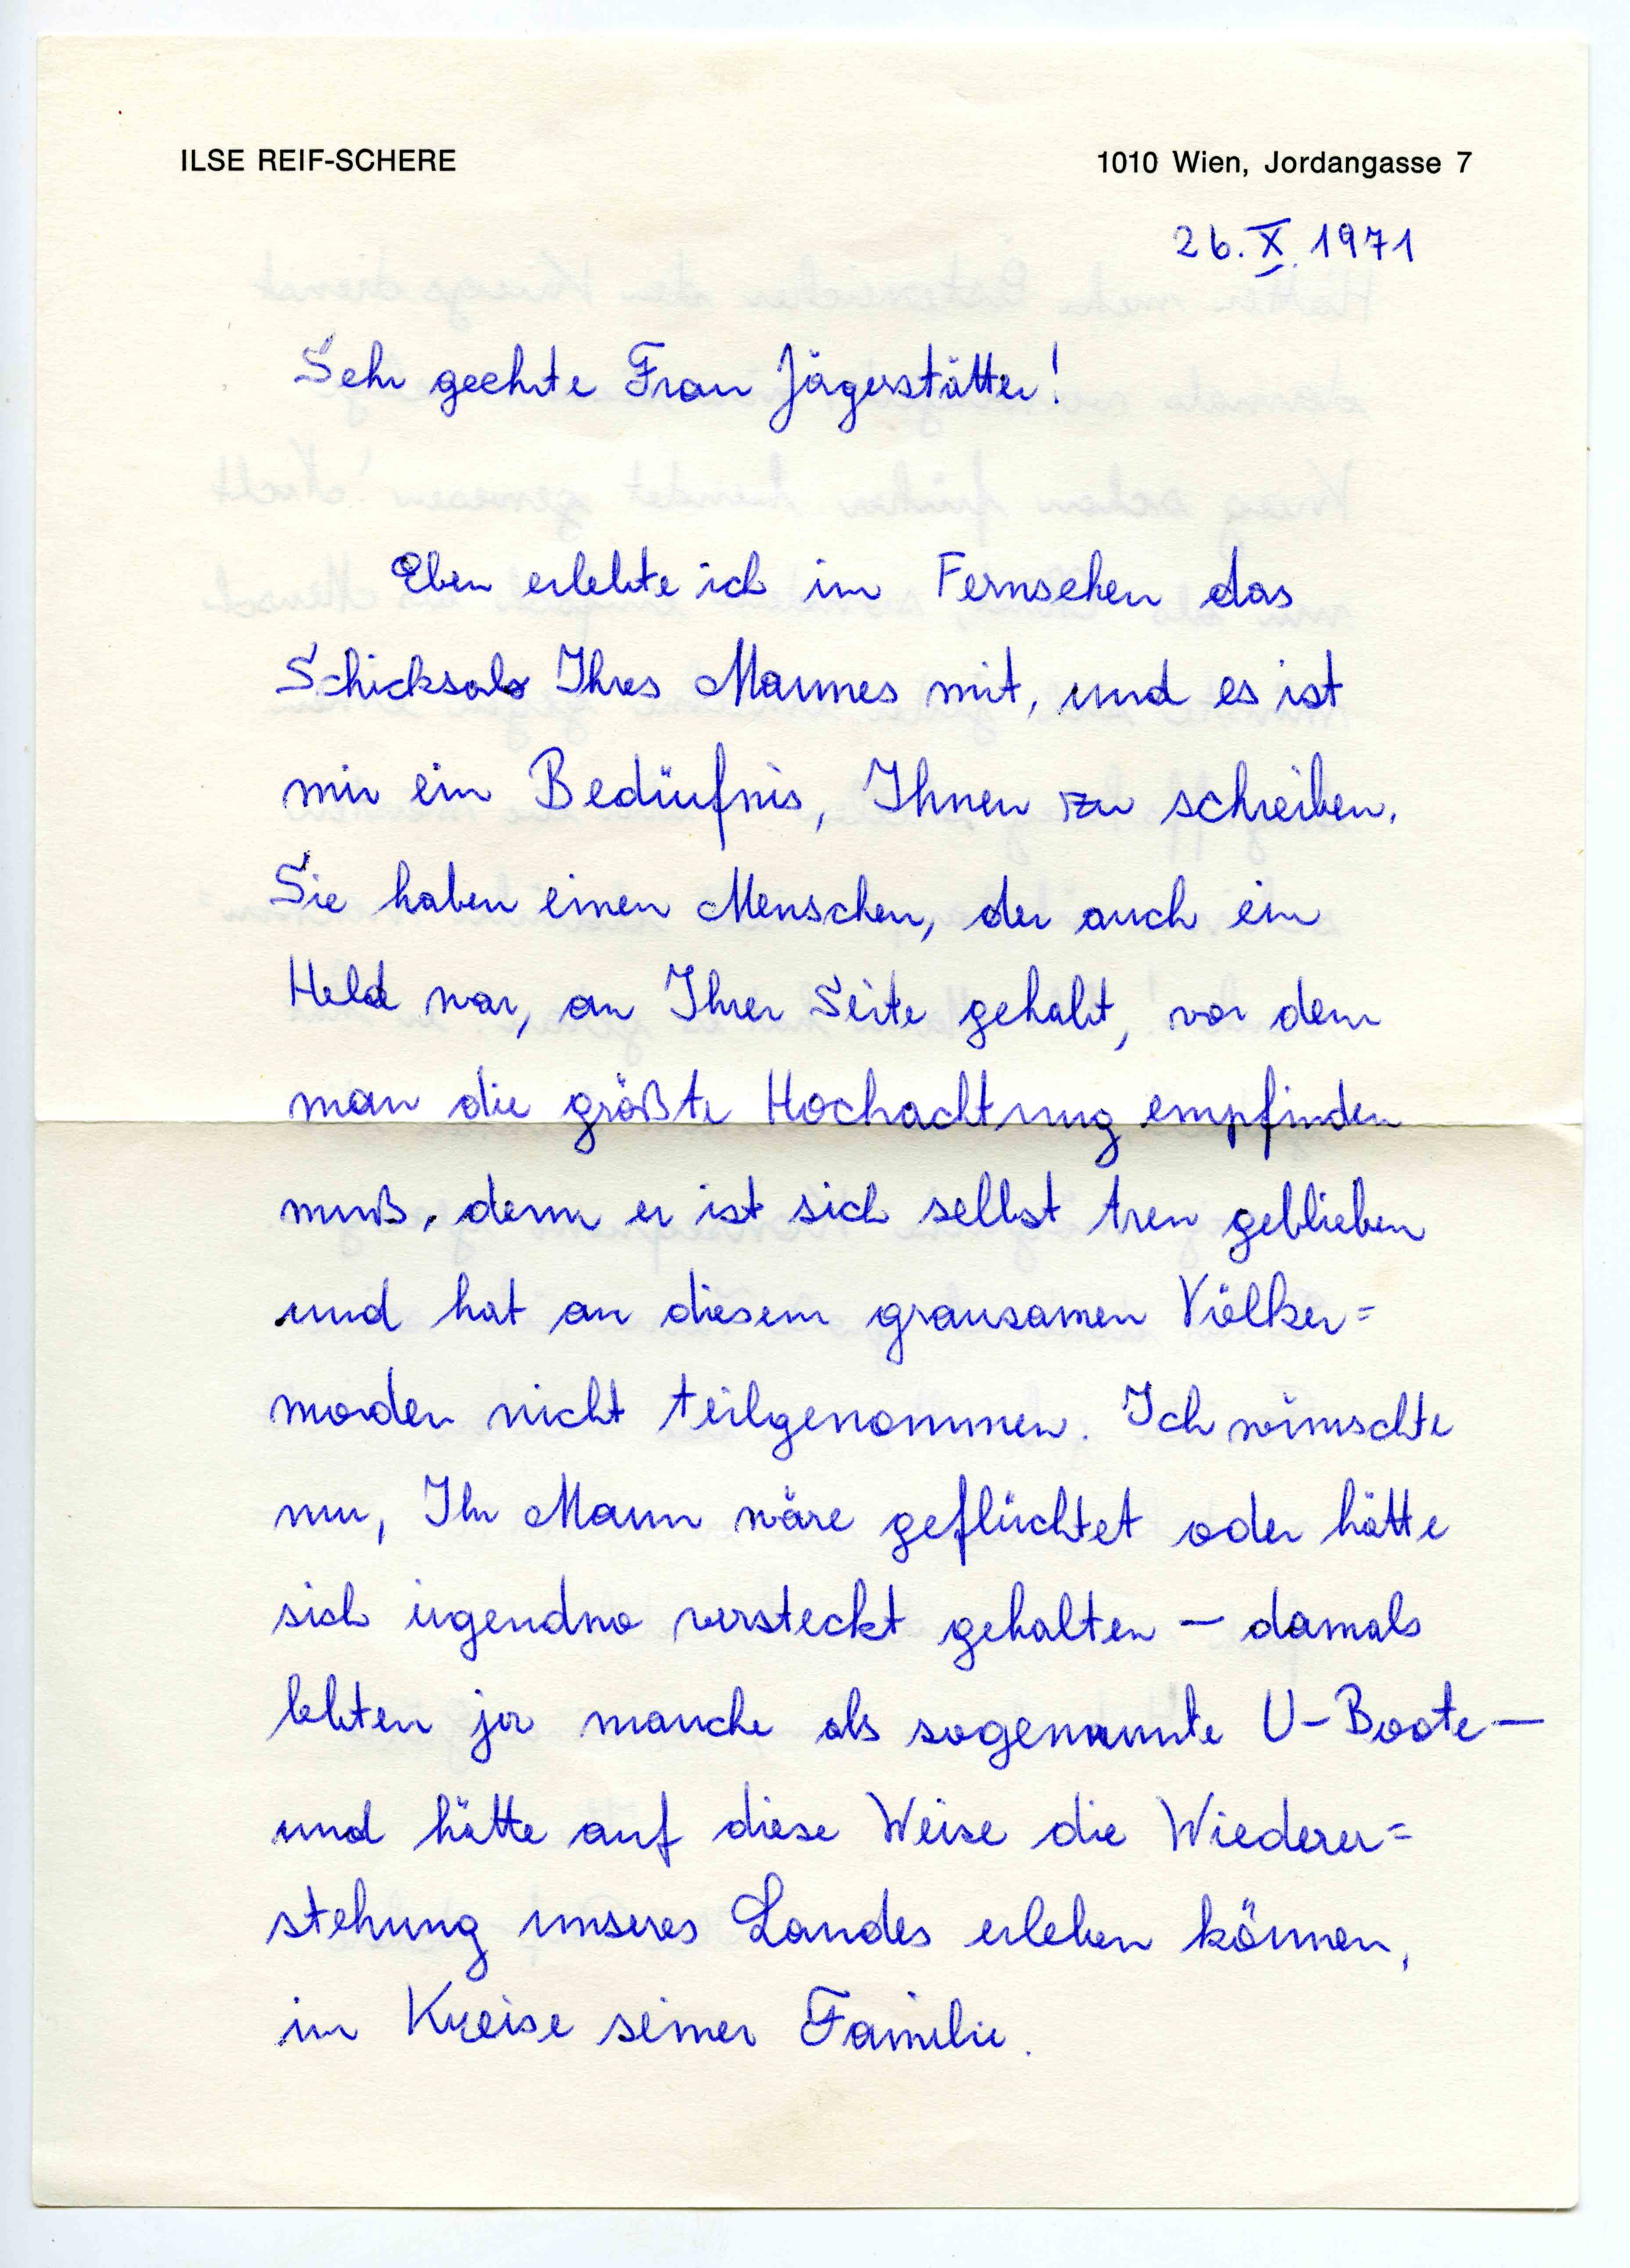 ILSE REIF-SCHERE
1010 Wien, Jordangasse 7
26. X. 1971
Sehr geehrte Frau Jägerstätter!
Eben erlebte ich im Fernsehen das
Schicksals Ihres Mannes mit, und es ist
mir ein Bedürfnis, Ihnen zu schreiben.
Sie haben einen Menschen, der auch ein
Held war, an Ihrer Seite gehabt, vor dem
man die größte Hochachtung empfinden
muß, denn er ist sich selbst treu geblieben
und hat an diesem grausamen Völker=
morden nicht teilgenommen. Ich wünschte
nur, Ihr Mann wäre geflüchtet oder hätte
sich irgendwo versteckt gehalten – damals
lebten ja manche als sogenannte U-Boote –
und hätte auf diese Weise die Wiederer=
stehung unseres Landes erleben können,
im Kreise seiner Familie.